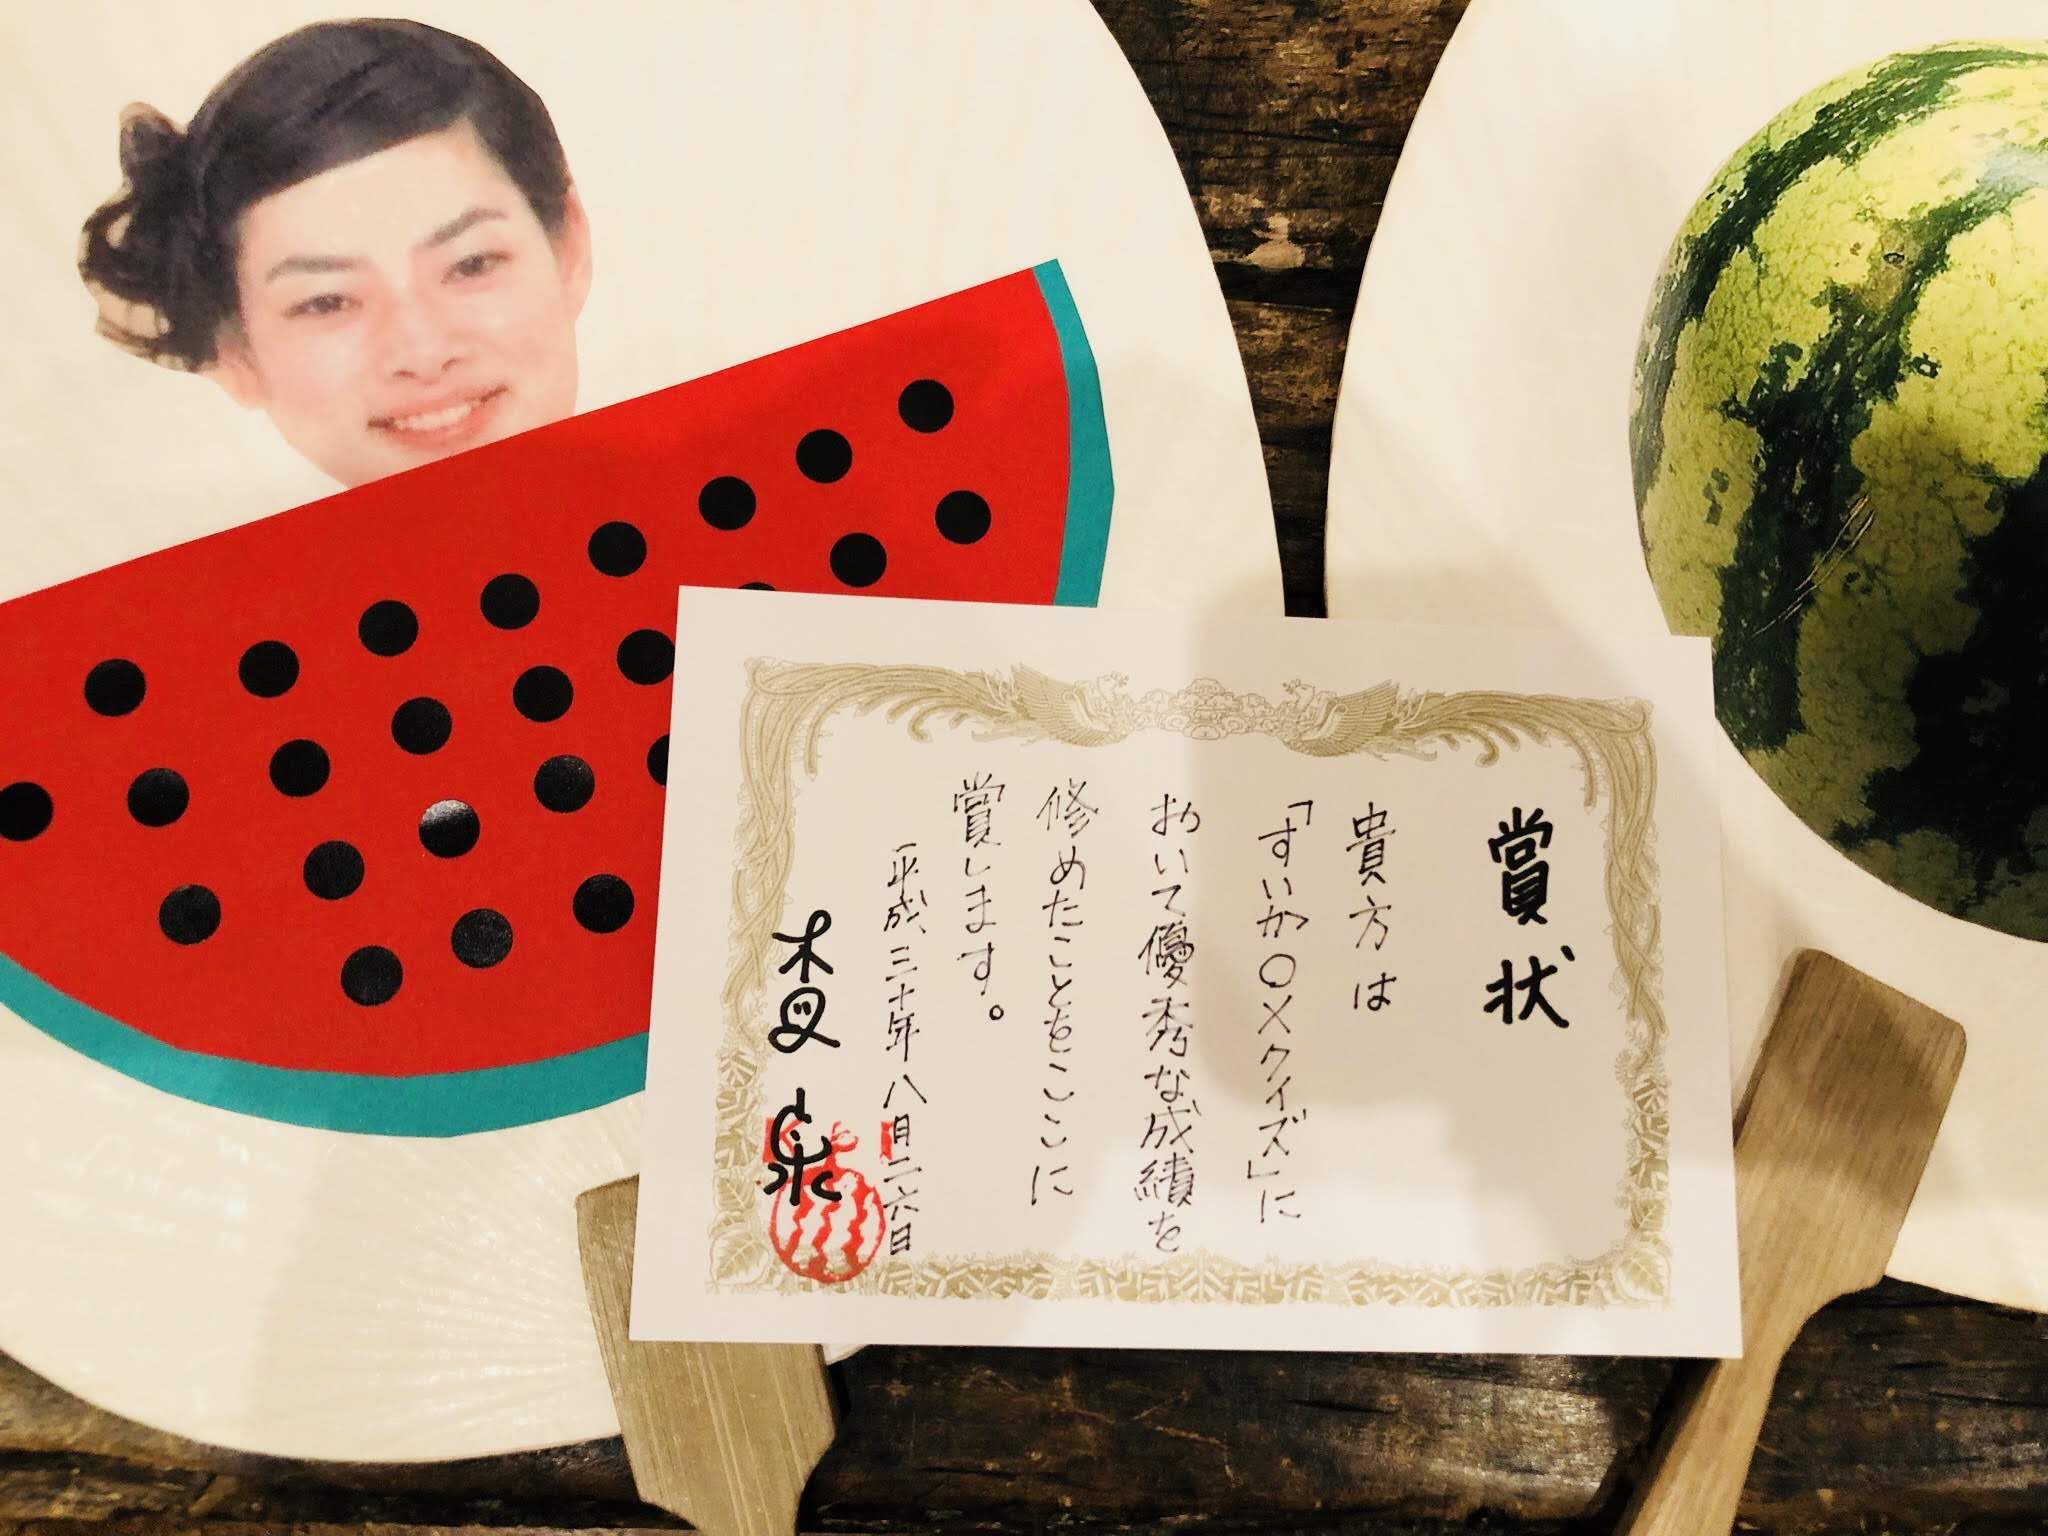 賞状
貴方は
「すいか〇×クイズ」に
おいて優秀な成績を
修めたことをここに
賞します。
平成三十年八月二六日